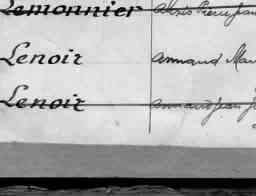 Lemonnier Alexis Pierre Jean
Lenoir Armand Mau
Lenoir Armand Jean J